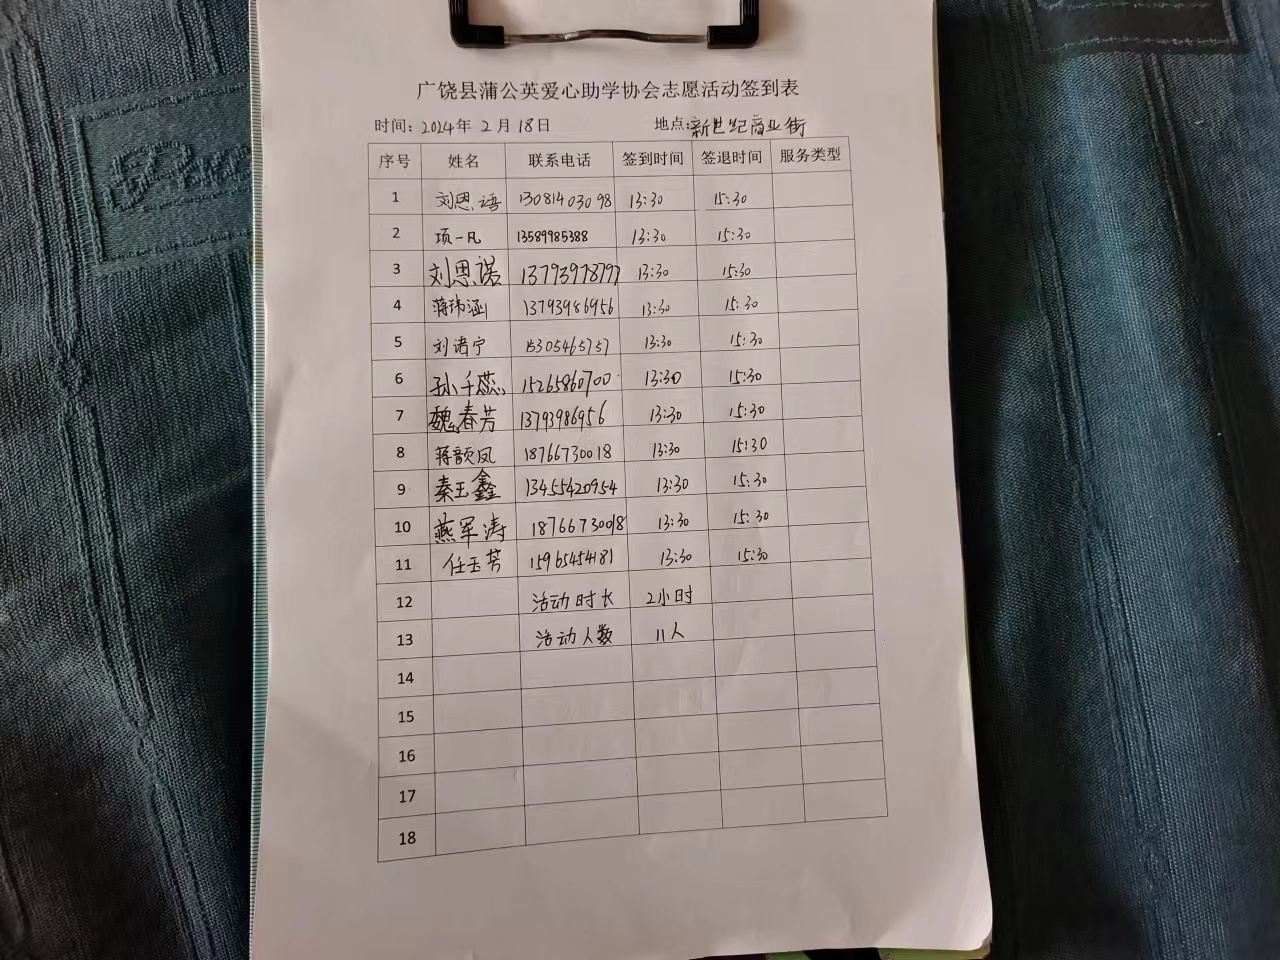 广饶县蒲公英爱心助学协会志愿活动签到表
时间：2024年 2月 18日 地点：新世纪商业街
序号 姓名 联系电话 签到时间 签退时间 服务类型
1 刘恩语 13081403098 13:30 15:30
2 项一凡 13589985388 13:30 15:30
3 刘思诺 13793978797 13:30 15:30
4 蒋玮涵 13793986956 13:30 15:30
5 刘诺宁 15305465757 13:30 15:30
6 孙千蕊 15265860700 13:30 15:30
7 魏春芳 13793986956 13:30 15:30
8 蒋颜凤 18766730018 13:30 15:30
9 秦玉鑫 13455420954 13:30 15:30
10 燕军涛 18766730018 13:30 15:30
11 任玉芳 15965454181 13:30 15:30
12 活动时长 2小时
13 活动人数 11人
14
15
16
17
18